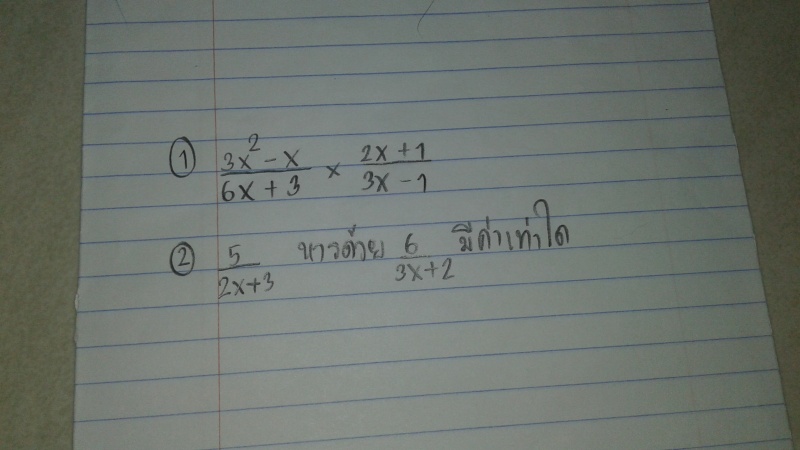 ① 3x² - x / 6x + 3 × 2x + 1 / 3x - 1
② 5 / 2x+3 หารด้วย 6 / 3x+2 มีค่าเท่าใด